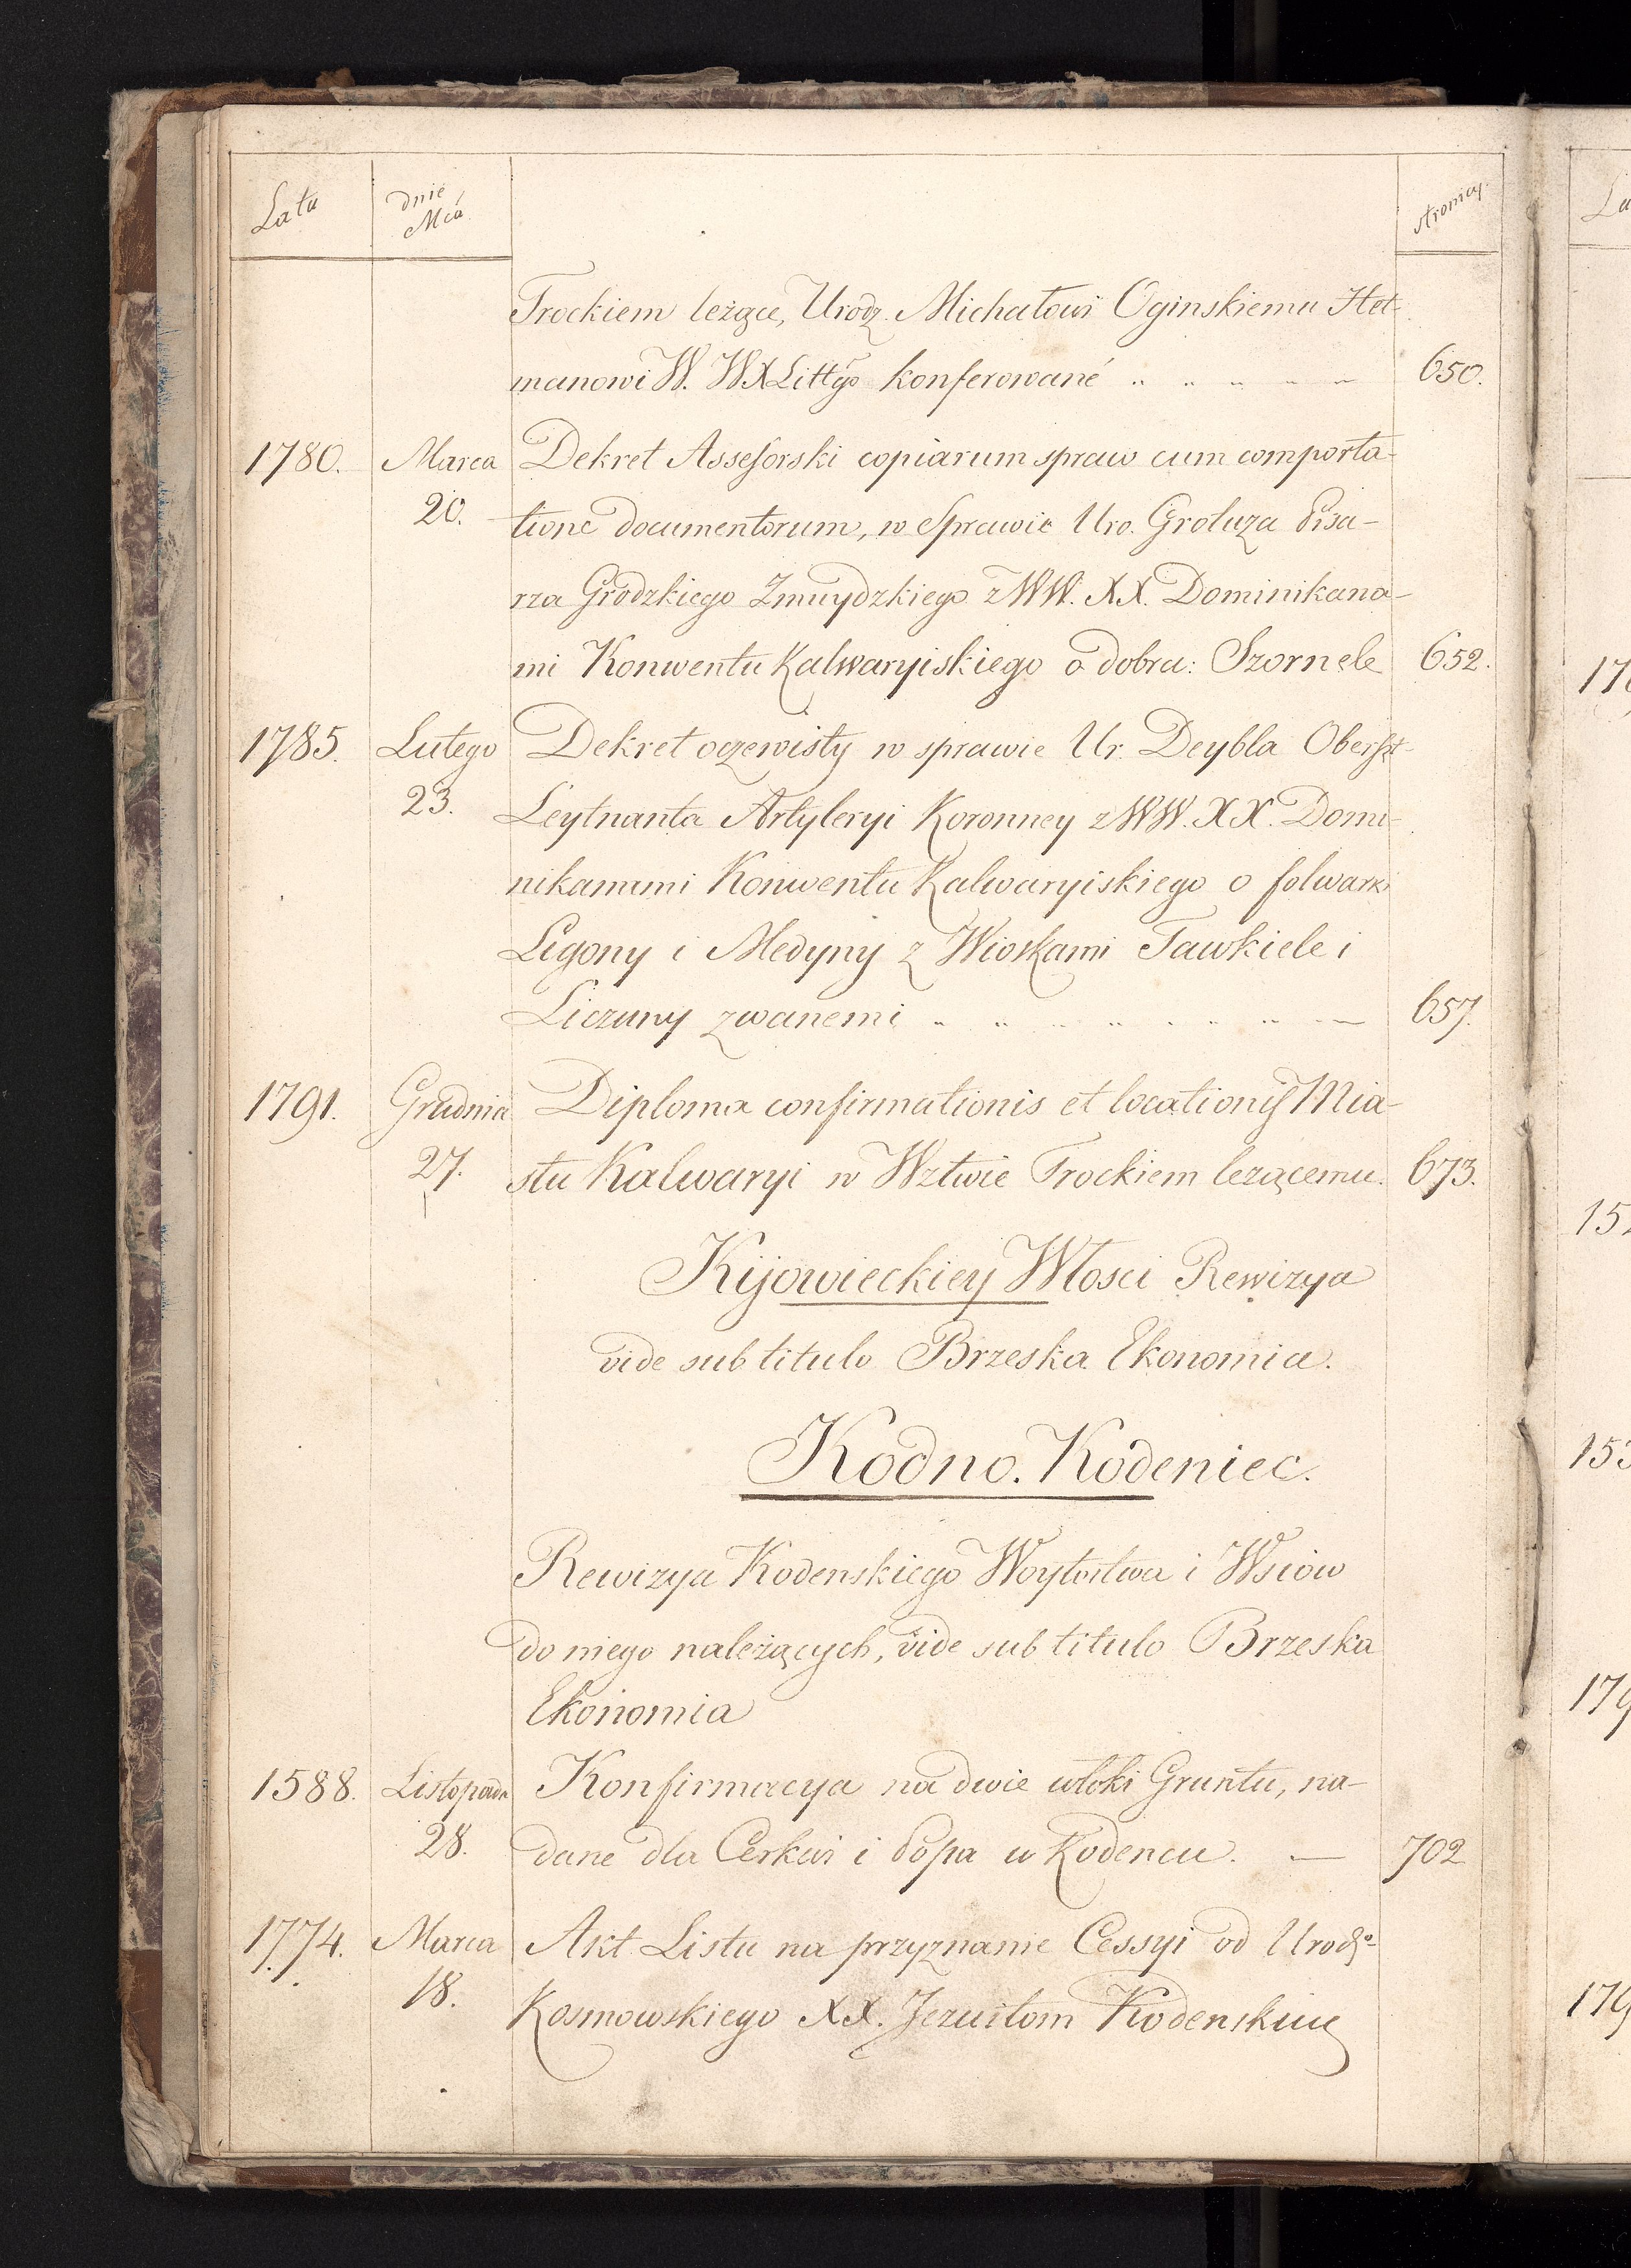 Lata dnie Mca stronicy.
Trockiem leżące, Urodz. Michałowi Oginskiemu Het-
manowi W. WXLittgo konferowané 650.
1780. Marca Dekret Assessorski copiarum spraw cum comporta-
20. tione documentorum, w Sprawie Uro. Grotuza Pisa-
rza Grodzkiego Zmuydzkiego z WW. XX. Dominikana-
mi Konwentu Kalwaryiskiego o dobra: Szornele 652.
1785. Lutego Dekret oczewisty w sprawie Ur. Deybla Oberszt-
23. Leytnanta Artyleryi Koronney z WW. XX. Domi-
nikanami Konwentu Kalwaryiskiego o folwarki
Legony i Medyny z Wioskami Tawkiele i
Liczuny zwanemi 657.
1791. Grudnia Diploma confirmationis et locationis Mia-
27. stu Kalwaryi w Wztwie Trockiem leżącemu. 673.
Kijowieckiey Włosci Rewizya
vide sub titulo Brzeska Ekonomia.
Kodno. Kodeniec.
Rewizya Kodenskiego Woytostwa i Wsiow
do niego należących, vide sub titulo Brzeska
Ekonomia
1588. Listopada Konfirmacya na dwie włoki Gruntu, na-
28. dane dla Cerkwi i Popa w Kodencu. — 702
1774. Marca Akt Listu na przyznanie Cessyi od Urodzo-
18. Kosmowskiego XX. Jezuitom Kodenskim
La
152
153
179
179